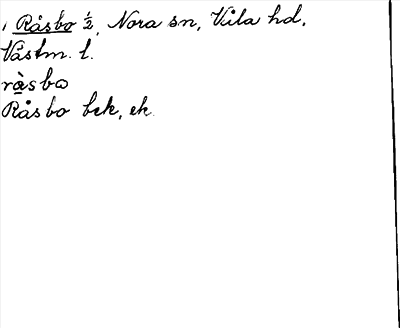 1 Råsbo ½, Nora sn, Våla hd,
Västm. l.
ràsbo
Råsbo bek, ek.